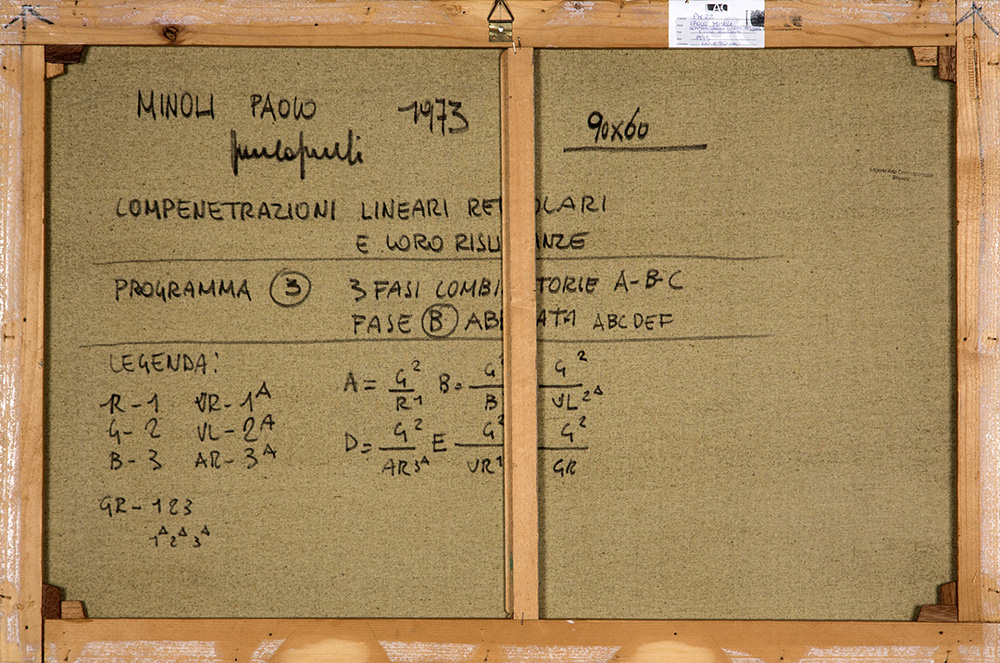 LAC
MINOLI PAOLO 1973
90x60
COMPENETRAZIONI LINEARI RE OLARI
E LORO RISU NZE
PROGRAMMA 3 3 FASI COMBI TORIE A-B-C
FASE B AB ATA ABCDEF
LEGENDA:
R-1 VR-1^A
G-2 VL-2^A
B-3 AR-3^A
GR-123
1^A 2^A 3^A
A = G^2 / R^1 B = G^2 / B G^2 / VL^2A
D = G^2 / AR3^A E G^2 / VR^1 G^2 / GR